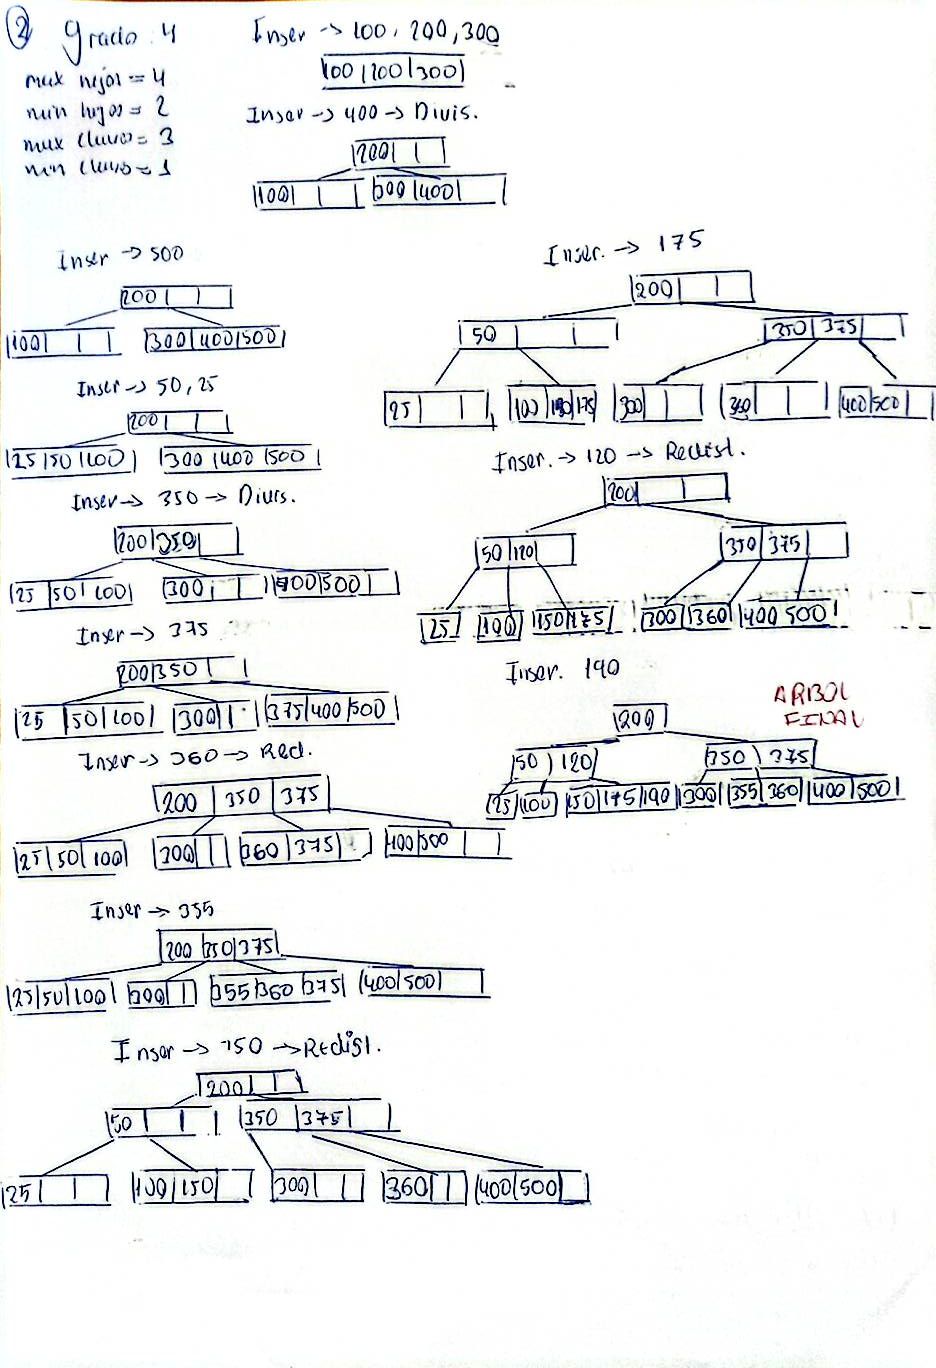 2 grado: 4
max hijos = 4
min hijos = 2
max claves = 3
min claves = 1
Inser → 100, 200, 300
100 | 200 | 300
Inser → 400 → Divis.
200
100 300 | 400
Inser → 500
200
100 300 | 400 | 500
Inser → 50, 25
200
25 | 50 | 100 300 | 400 | 500
Inser → 350 → Divis.
200 | 350
25 | 50 | 100 300 400 | 500
Inser → 375
200 | 350
25 | 50 | 100 300 375 | 400 | 500
Inser → 360 → Red.
200 | 350 | 375
25 | 50 | 100 300 360 | 375 400 | 500
Inser → 355
200 | 350 | 375
25 | 50 | 100 300 355 | 360 | 375 400 | 500
Inser → 150 → Redist.
200
50 350 | 375
25 100 | 150 300 360 400 | 500
Inser. → 175
200
50 350 | 375
25 100 | 150 | 175 300 360 400 | 500
Inser. → 120 → Redist.
200
50 | 120 350 | 375
25 100 150 | 175 300 360 400 500
Inser. 190
ARBOL
FINAL
200
50 | 120 350 | 375
25 100 150 | 175 | 190 300 355 | 360 400 | 500